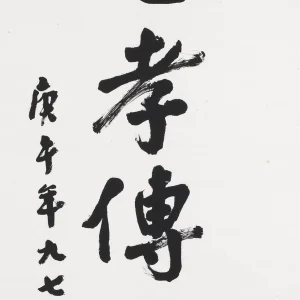 孝傳
庚午年九七